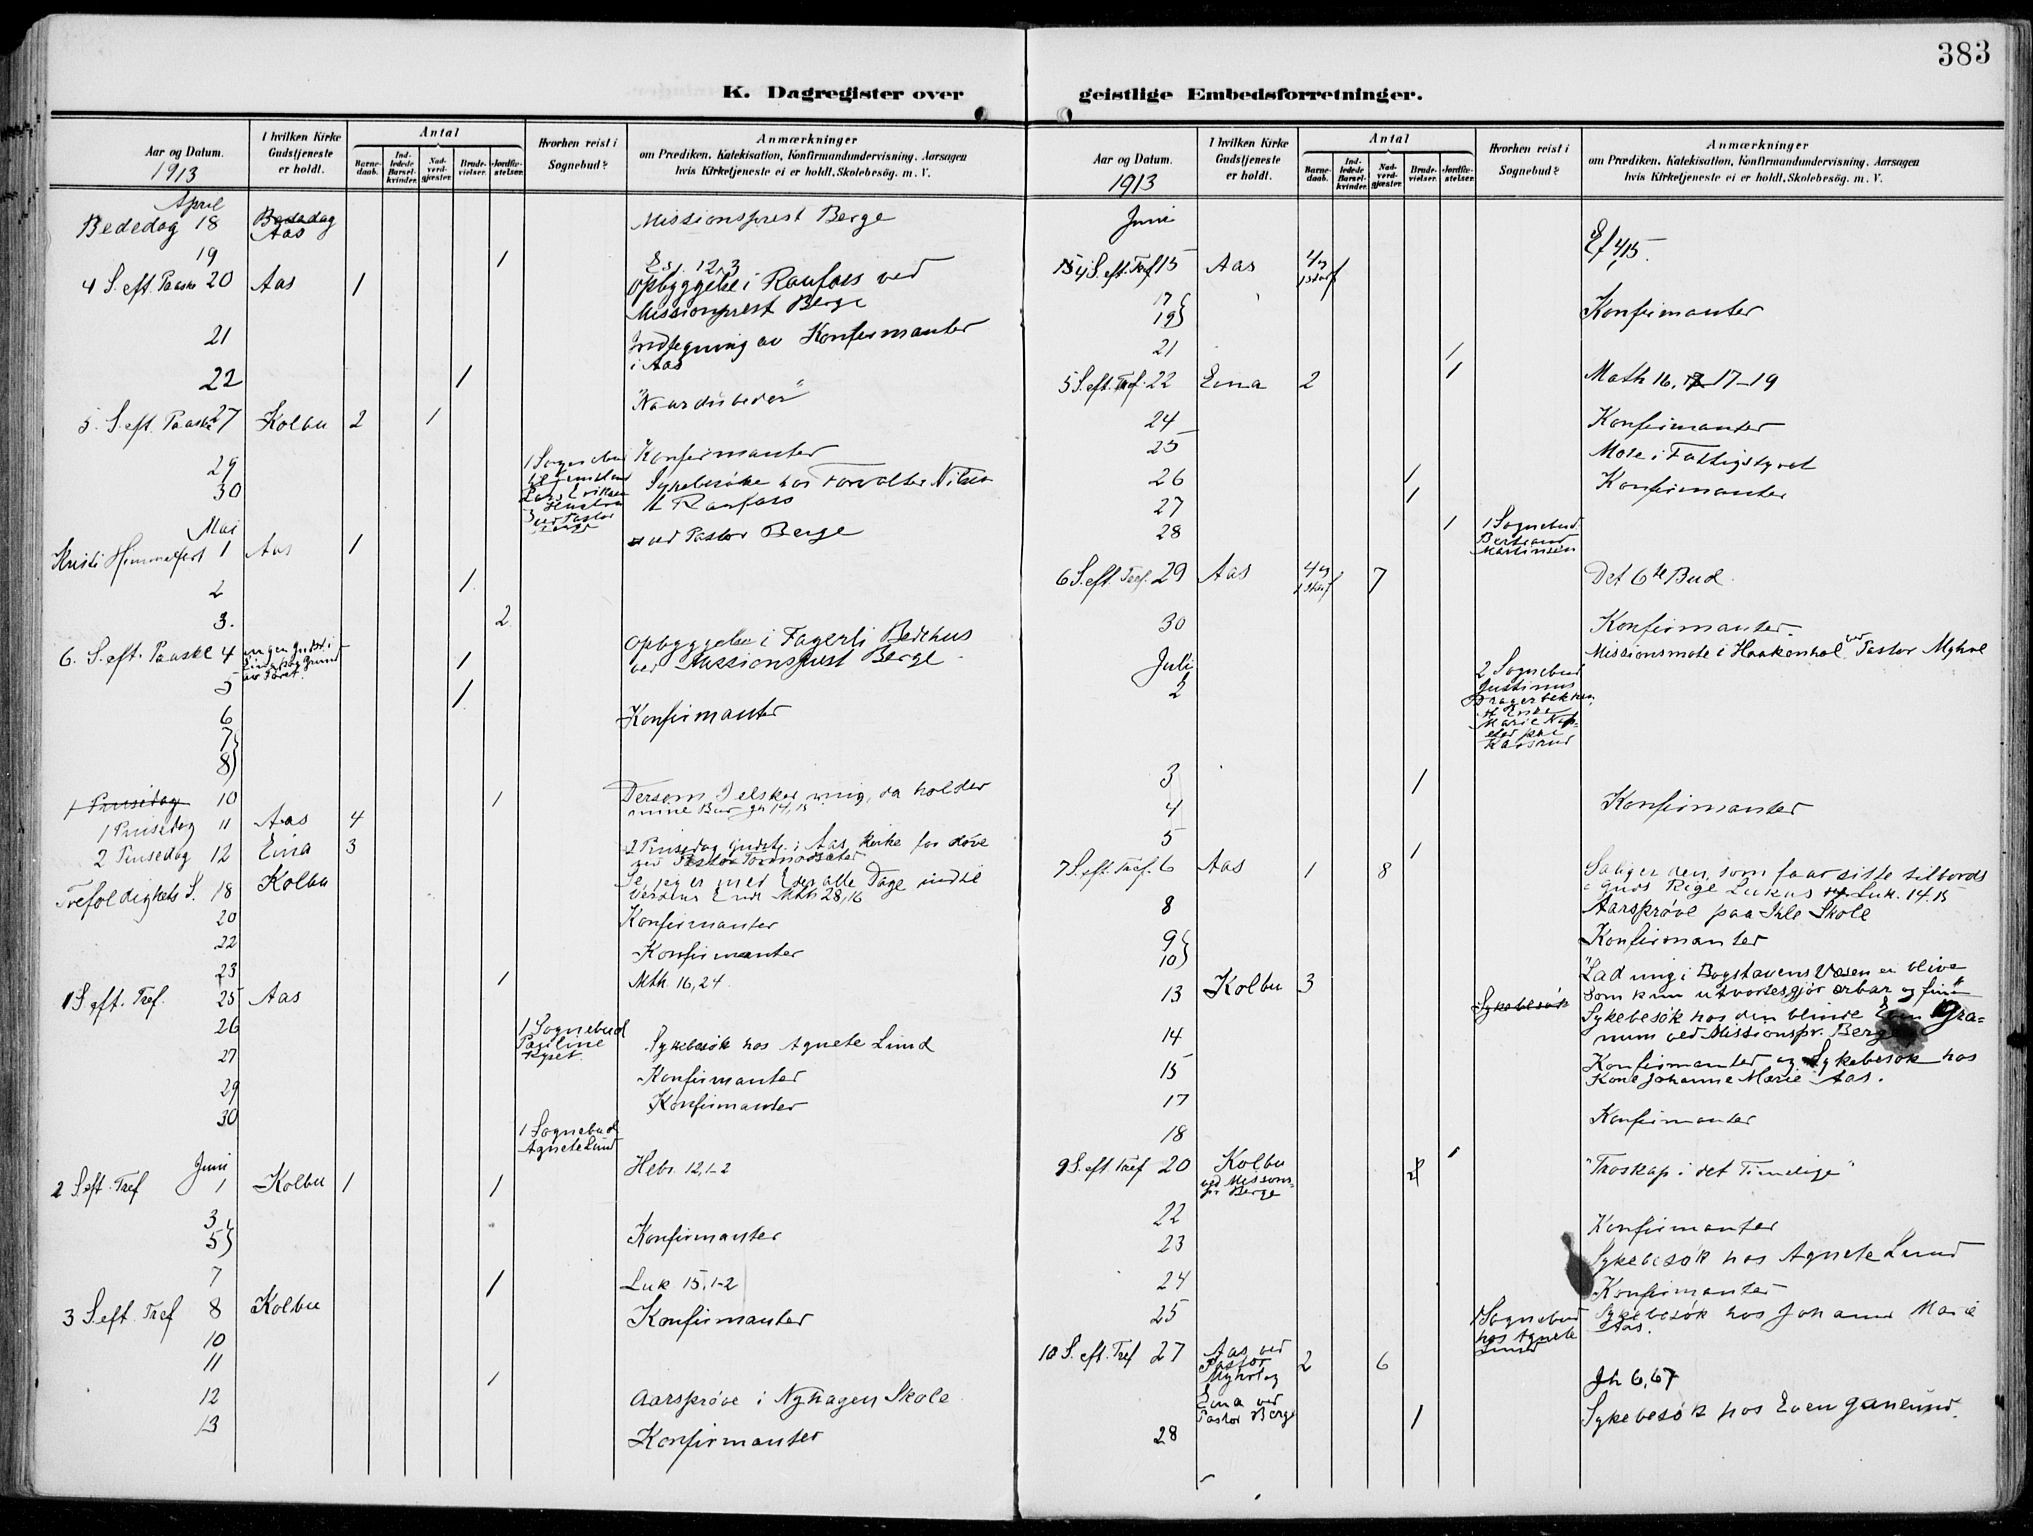 383
K. Dagregister over
geistlige Embedsforretninger.
Aar og Datum.
1913
I hvilken Kirke Gudstjeneste er holdt.
Antal
Barne-daab.
Ind-ledede Barsel-kvinder.
Nad-verd-gjæster.
Brude-vielser.
Jordfæ-stelser.
Hvorhen reist i Sognebud?
Anmærkninger
om Prædiken, Katekisation, Konfirmandundervisning, Aarsagen
hvis Kirketjeneste ei er holdt, Skolebesøg. m. V.
April
Bededag 18 Aas Missionsprest Berge
19 1
4 S. eft. Paaske 20 Aas 1 Es. 12,3
Opbyggelse i Raufoss ved
Missionsprest Berge
21 Indtegning av Konfirmanter
i Aas
22 1
5. S. eft. Paaske 27 Kolbu 2 1 "Naar du beder"
29 Konfirmanter
30 1 Sognebud Sykebesøk hos Forvalter Nilsen
Raufoss
Mai
Kristi Himmelfart 1 Aas 1 ved Pastor Berge
2 1
3. 2
6. S. eft. Paaske 4 ingen Gudst. i Eina paa Grund av Føret. 1 Opbyggelse i Fagerli Bedehus
ved Missionsprest Berge
5 1
6 Konfirmanter
7
8
1 Pinsedag 10 1 Dersom I elsker mig, da holder
mine Bud Jh 14,15
1 Pinsedag 11 Aas 4
2 Pinsedag 12 Eina 3 2 Pinsedag Gudstj. i Aas Kirke for døve
ved Pastor Tormodsæter
Trefoldighets S. 18 Kolbu Se, jeg er med Eder alle Dage indtil
Verdens Ende Mth 28,16
20 Konfirmanter
22 Konfirmanter
23 1 Mth. 16,24
1 S. eft. Tref. 25 Aas
26 1 Sognebud Pauline Ryset Sykebesøk hos Agnete Lund
27 Konfirmanter
29 Konfirmanter
30 1 Sognebud Agnete Lund
Juni Hebr. 12,1-2
2 S. eft. Tref 1 Kolbu 1 1
3
5 Konfirmanter
7 1 Luk 15,1-2
3 S. eft. Tref 8 Kolbu Konfirmanter
10
11 1
12 Aarsprøve i Nyhagen Skole
13 Konfirmanter
Aar og Datum.
1913
I hvilken Kirke Gudstjeneste er holdt.
Antal
Barne-daab.
Ind-ledede Barsel-kvinder.
Nad-verd-gjæster.
Brude-vielser.
Jordfæ-stelser.
Hvorhen reist i Sognebud?
Anmærkninger
om Prædiken, Katekisation, Konfirmandundervisning, Aarsagen
hvis Kirketjeneste ei er holdt, Skolebesøg. m. V.
Juni
4 S. eft. Tref 15 Aas 4 og Ef 4,15.
17
19 Konfirmanter
21 1
5 S. eft. Tref. 22 Eina 2 1 Math 16, 17-19
24 Konfirmanter
25 Møte i Fattigstyret
26 1 Konfirmanter
27 1
28 1 1 Sognebud Bertrand Martinsen
6 S. eft. Tref. 29 Aas 4 og 7 Det 6te Bud
30 Konfirmanter
Missionsmøte i Haakenhol ved Pastor Myhre
Juli
2 2 Sognebud
3 1
4 Konfirmanter
5 1
7 S. eft. Tref. 6 Aas 1 8 Salig er den, som faar sitte tilbords
i Guds Rige Lukas Luk. 14.15
8 Aarsprøve paa Ihle Skole
9
10 Konfirmanter
13 Kolbu 3 "Lad mig i Bogstavens Væsen ei blive
Sykebesøk som kun utvortes gjør ærbar og fin"
14 Sykebesøk hos den blinde Even Gra-
num ved Missionspr. Berge
15 Konfirmanter og Sykebesøk hos
Kone Johanne Marie Aas.
17 Konfirmanter
18 1
9 S. eft. Tref 20 Kolbu ved Missions-pr Berge "Troskap i det Timelige"
22 Konfirmanter
23 Sykebesøk hos Agnete Lund
24 Konfirmanter
25 1 Sognebud hos Agnete Lund Sykebesøk hos Johanne Marie
Aas.
10 S. eft. Tref 27 Aas ved Pastor Myhre og 2 6 Jh 6,67
Eina ved Pastor Berge 1 Sykebesøk hos Even
28